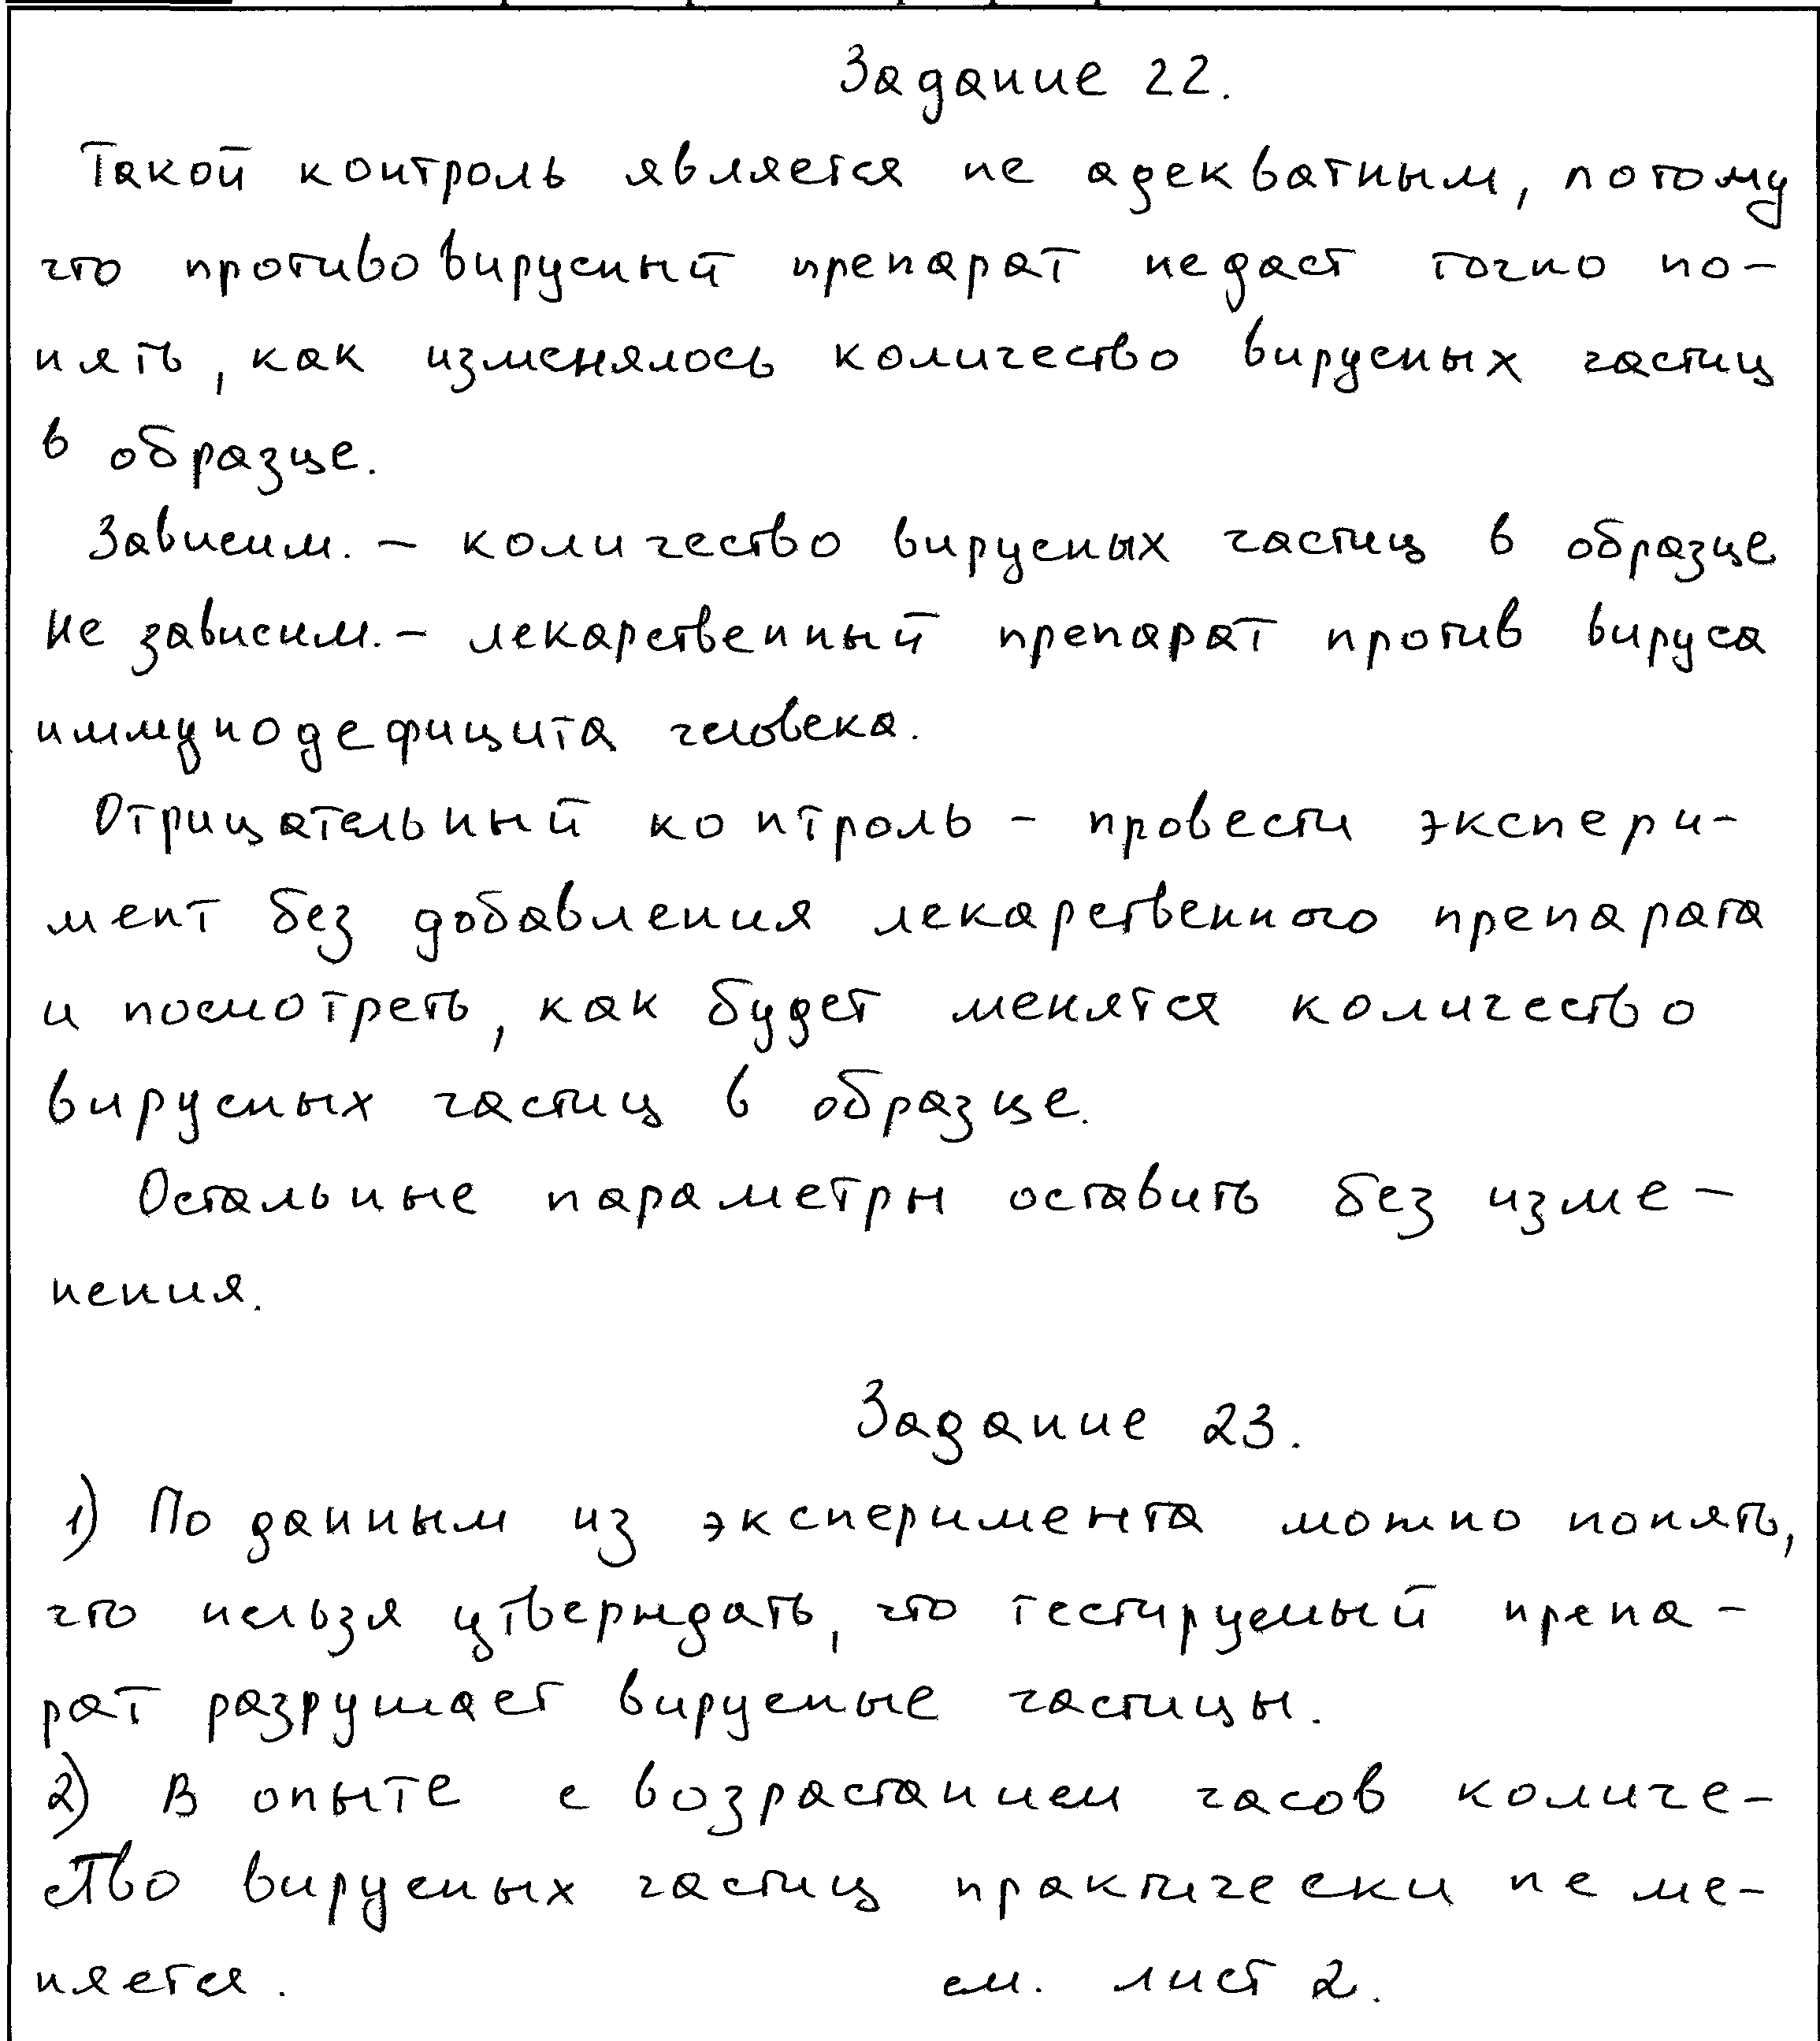 Задание 22.
Такой контроль является не адекватным, потому
что противовирусный препарат недаст точно по-
нять, как изменялось количество вирусных частиц
в образце.
Зависим. – количество вирусных частиц в образце
Не зависим. – лекарственный препарат против вируса
иммунодефицита человека.
Отрицательный контроль – провести экспери-
мент без добавления лекарственного препарата
и посмотреть, как будет менятся количество
вирусных частиц в образце.
Остальные параметры оставить без изме-
нения.
Задание 23.
1) По данным из эксперимента можно понять,
что нельзя утверждать, что тестируемый препа-
рат разрушает вирусные частицы.
2) В опыте с возрастанием часов количе-
ство вирусных частиц практически не ме-
няется. см. лист 2.